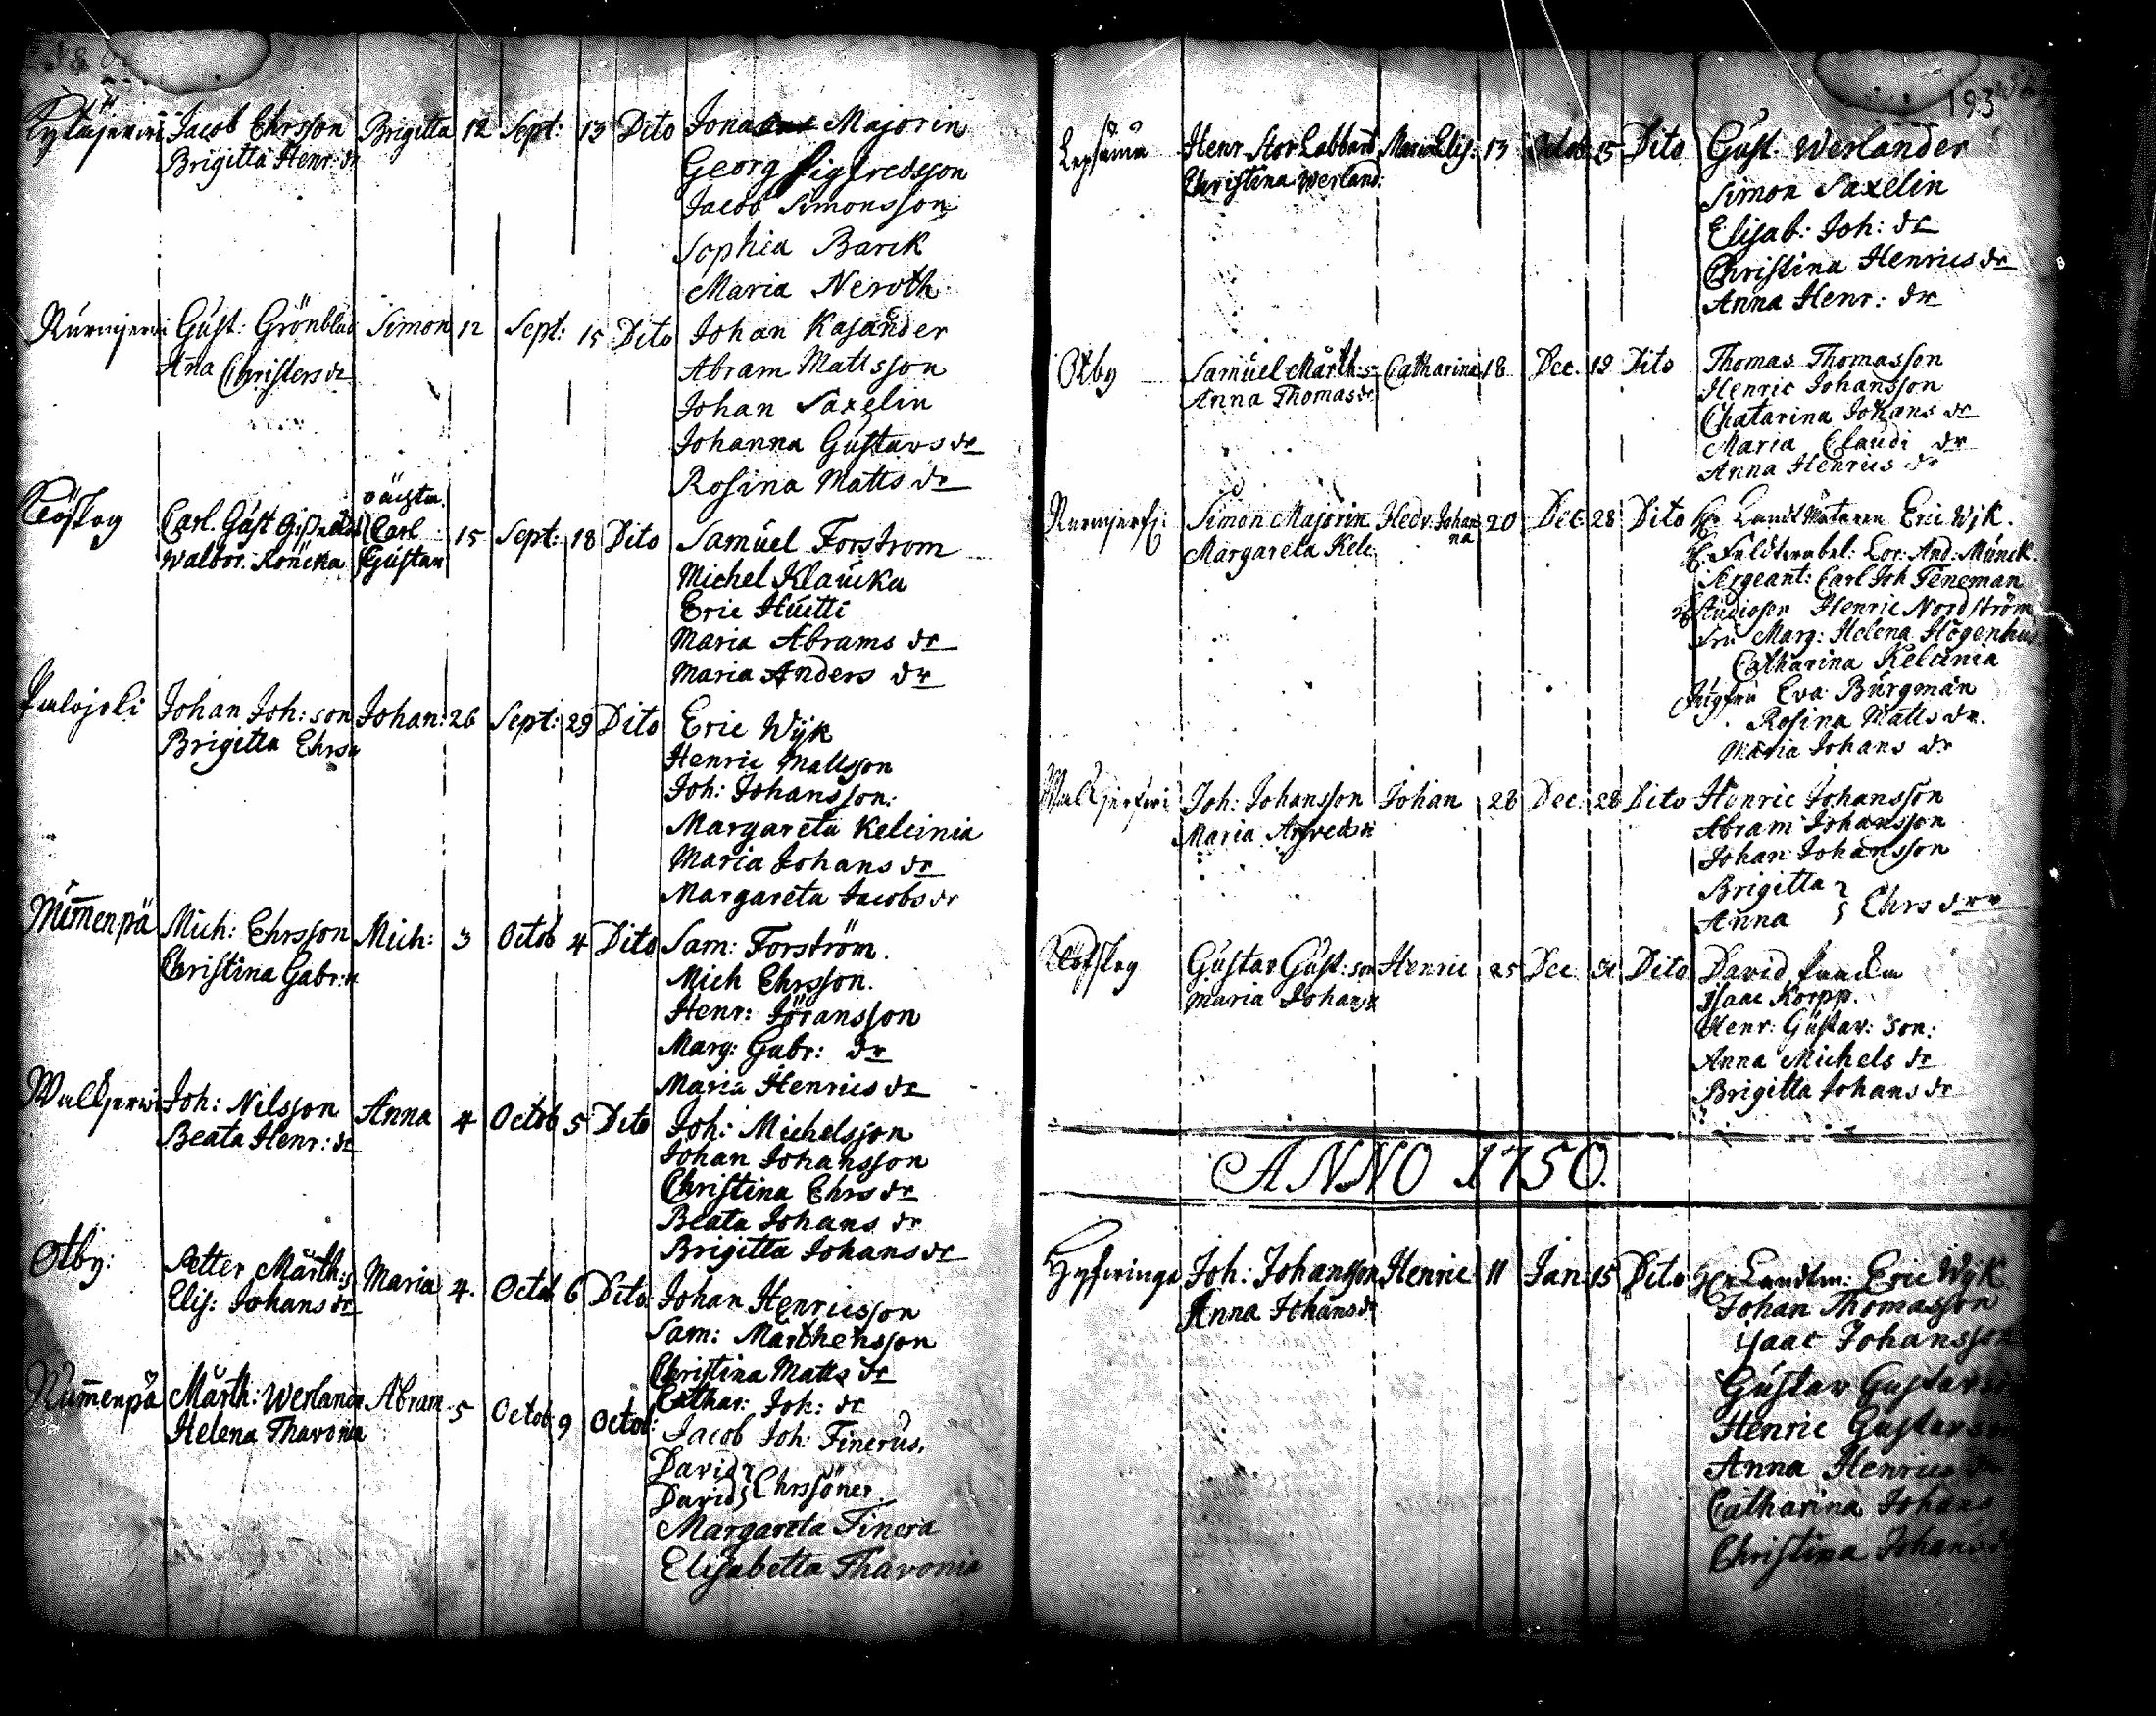 193
Kytäjerwi Jacob Ehrsson Brigitta 12 Sept: 13 Dito Jonas Majorin
Brigitta Henr: dr Georg Sigfredsson
Jacob Simonsson
Sophia Barck
Maria Neroth
Nurmjerwi Gust: Grönblad Simon 12 Sept: 15 Dito Johan Kasander
Aña Christersdr Abram Mattsson
Johan Saxelin
Johanna Gustavs dr
Rosina Matts dr
oächta
Carl. Gust Carl 15 Sept: 18 Dito Samuel Forstrom
Walbor. Gustav Michel Klaucka
Eric Huitti
Maria Abrams dr
Maria Anders dr
Palojoki Johan Joh: son Johan: 26 Sept: 29 Dito Eric Wijk
Brigitta Ehrs Henric Mattsson
Joh: Johansson:
Margareta Kelcinia
Maria Johans dr
Margareta Jacobs dr
Mich: Ehrsson Mich: 3 Octob 4 Dito Sam: Forström.
Christina Gabr: Mich Ehrsson.
Henr: Jöransson
Marg: Gabr: dr
Maria Henrics dr
Walkjerwi Joh: Nilsson Anna 4 Octob 5 Dito Joh: Michelsson
Beata Henr: dr Johan Johansson
Christina Ehrs dr
Beata Johans dr
Brigitta Johans dr
Otby: Petter Mårth: s Maria 4. Octob 6 Dito Johan Henricsson
Elis: Johans dr Sam: Marthensson
Christina Matts dr
Cathar: Joh: dr
Num̄enpä Mårth: Werlander Abram 5 Octob 9 Octob: Jacob Joh: Finerus,
Helena Thavonia David
David Ehrssöner
Margareta Finera
Elisabetta Thavonia
Lepsama Henr Stor Labbart Maria Elis: 13 Octob: 15 Dito Gust: Werlander
Christina Werland: Simon Saxelin
Elisab: Joh: dr
Christina Henrics dr
Anna Henr: dr
Otby Samuel Mårth: s Catharina 18 Dec. 19 Dito Thomas Thomasson
Anna Thomasdr Henric Johansson
Chatarina Johans dr
Maria Claudi dr
Anna Henrics dr
Simon Majorin Hedv: Johan 20 Dec: 28 Dito Hr LandtMätaren Eric Wijk.
Margareta Kelc na H. Feldtcrabel: Lor: And: Munck.
Sergeant: Carl Joh Teneman
Studiosen Henric Nordström
Fru Marg: Helena Högenhus
Catharina Kelcinia
Jugfru Eva Burgman
Rosina Matts dr.
Maria Johans dr
Walkjerfwi Joh: Johansson Johan 28 Dec. 28 Dito Henric Johansson
Maria Abram Johansson
Johan Johansson
Brigitta
Anna Ehrs drr
Gustav Gust: son Henric 25 Dec: 31 Dito David
Maria Johansdr Isaac Korpp.
Henr: Gustav: son:
Anna Michels dr
Brigitta Johans dr
ANNO 1750.
Hyfwinge Joh: Johansson Henric 11 Jan: 15 Dito Hr Landtm: Eric Wijk
Anna Johansdr Johan Thomasson
Isaac Johansson
Gustav Gustavson
Henric Gustavson
Anna Henrics dr
Catharina Johans
Christina Johansdr